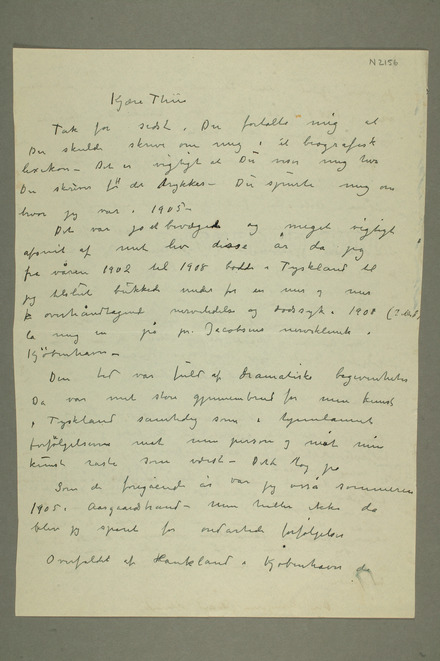 N 2156
Kjære Thiis
Tak for sidst. Du fortalte mig at
Du skulde skrive om mig i et biografisk
lexikon – Det er vigtigt at Du viser mig hva
Du skriver før det trykkes – Du spurte mig om
hvor jeg var i 1905 –
Det var jo et bevæget og meget vigtigt
afsnit af mit liv disse år da jeg
fra våren 1902 til 1908 bodde i Tyskland til
jeg tilslut bukkede under for en mer og mer
overhåndtagende nervelidelse og 1908
la mig inn på pr. Jacobsens nerveklinik i
Kjøbenhavn –
Den tid var fuld af dramatiske begivenheter
Da var mit store gjennembrud for min kunst
i Tyskland samtidig som
forfølgelserne mot min person og mot min
kunst raste som værst – Dette tog på
Som de foregående år var jeg også sommeren
1905 i Aasgaardstrand – men heller ikke da
blev jeg sparet for ondartede forfølgelser
Overfaldet af Haukland i Kjøbenhavn da